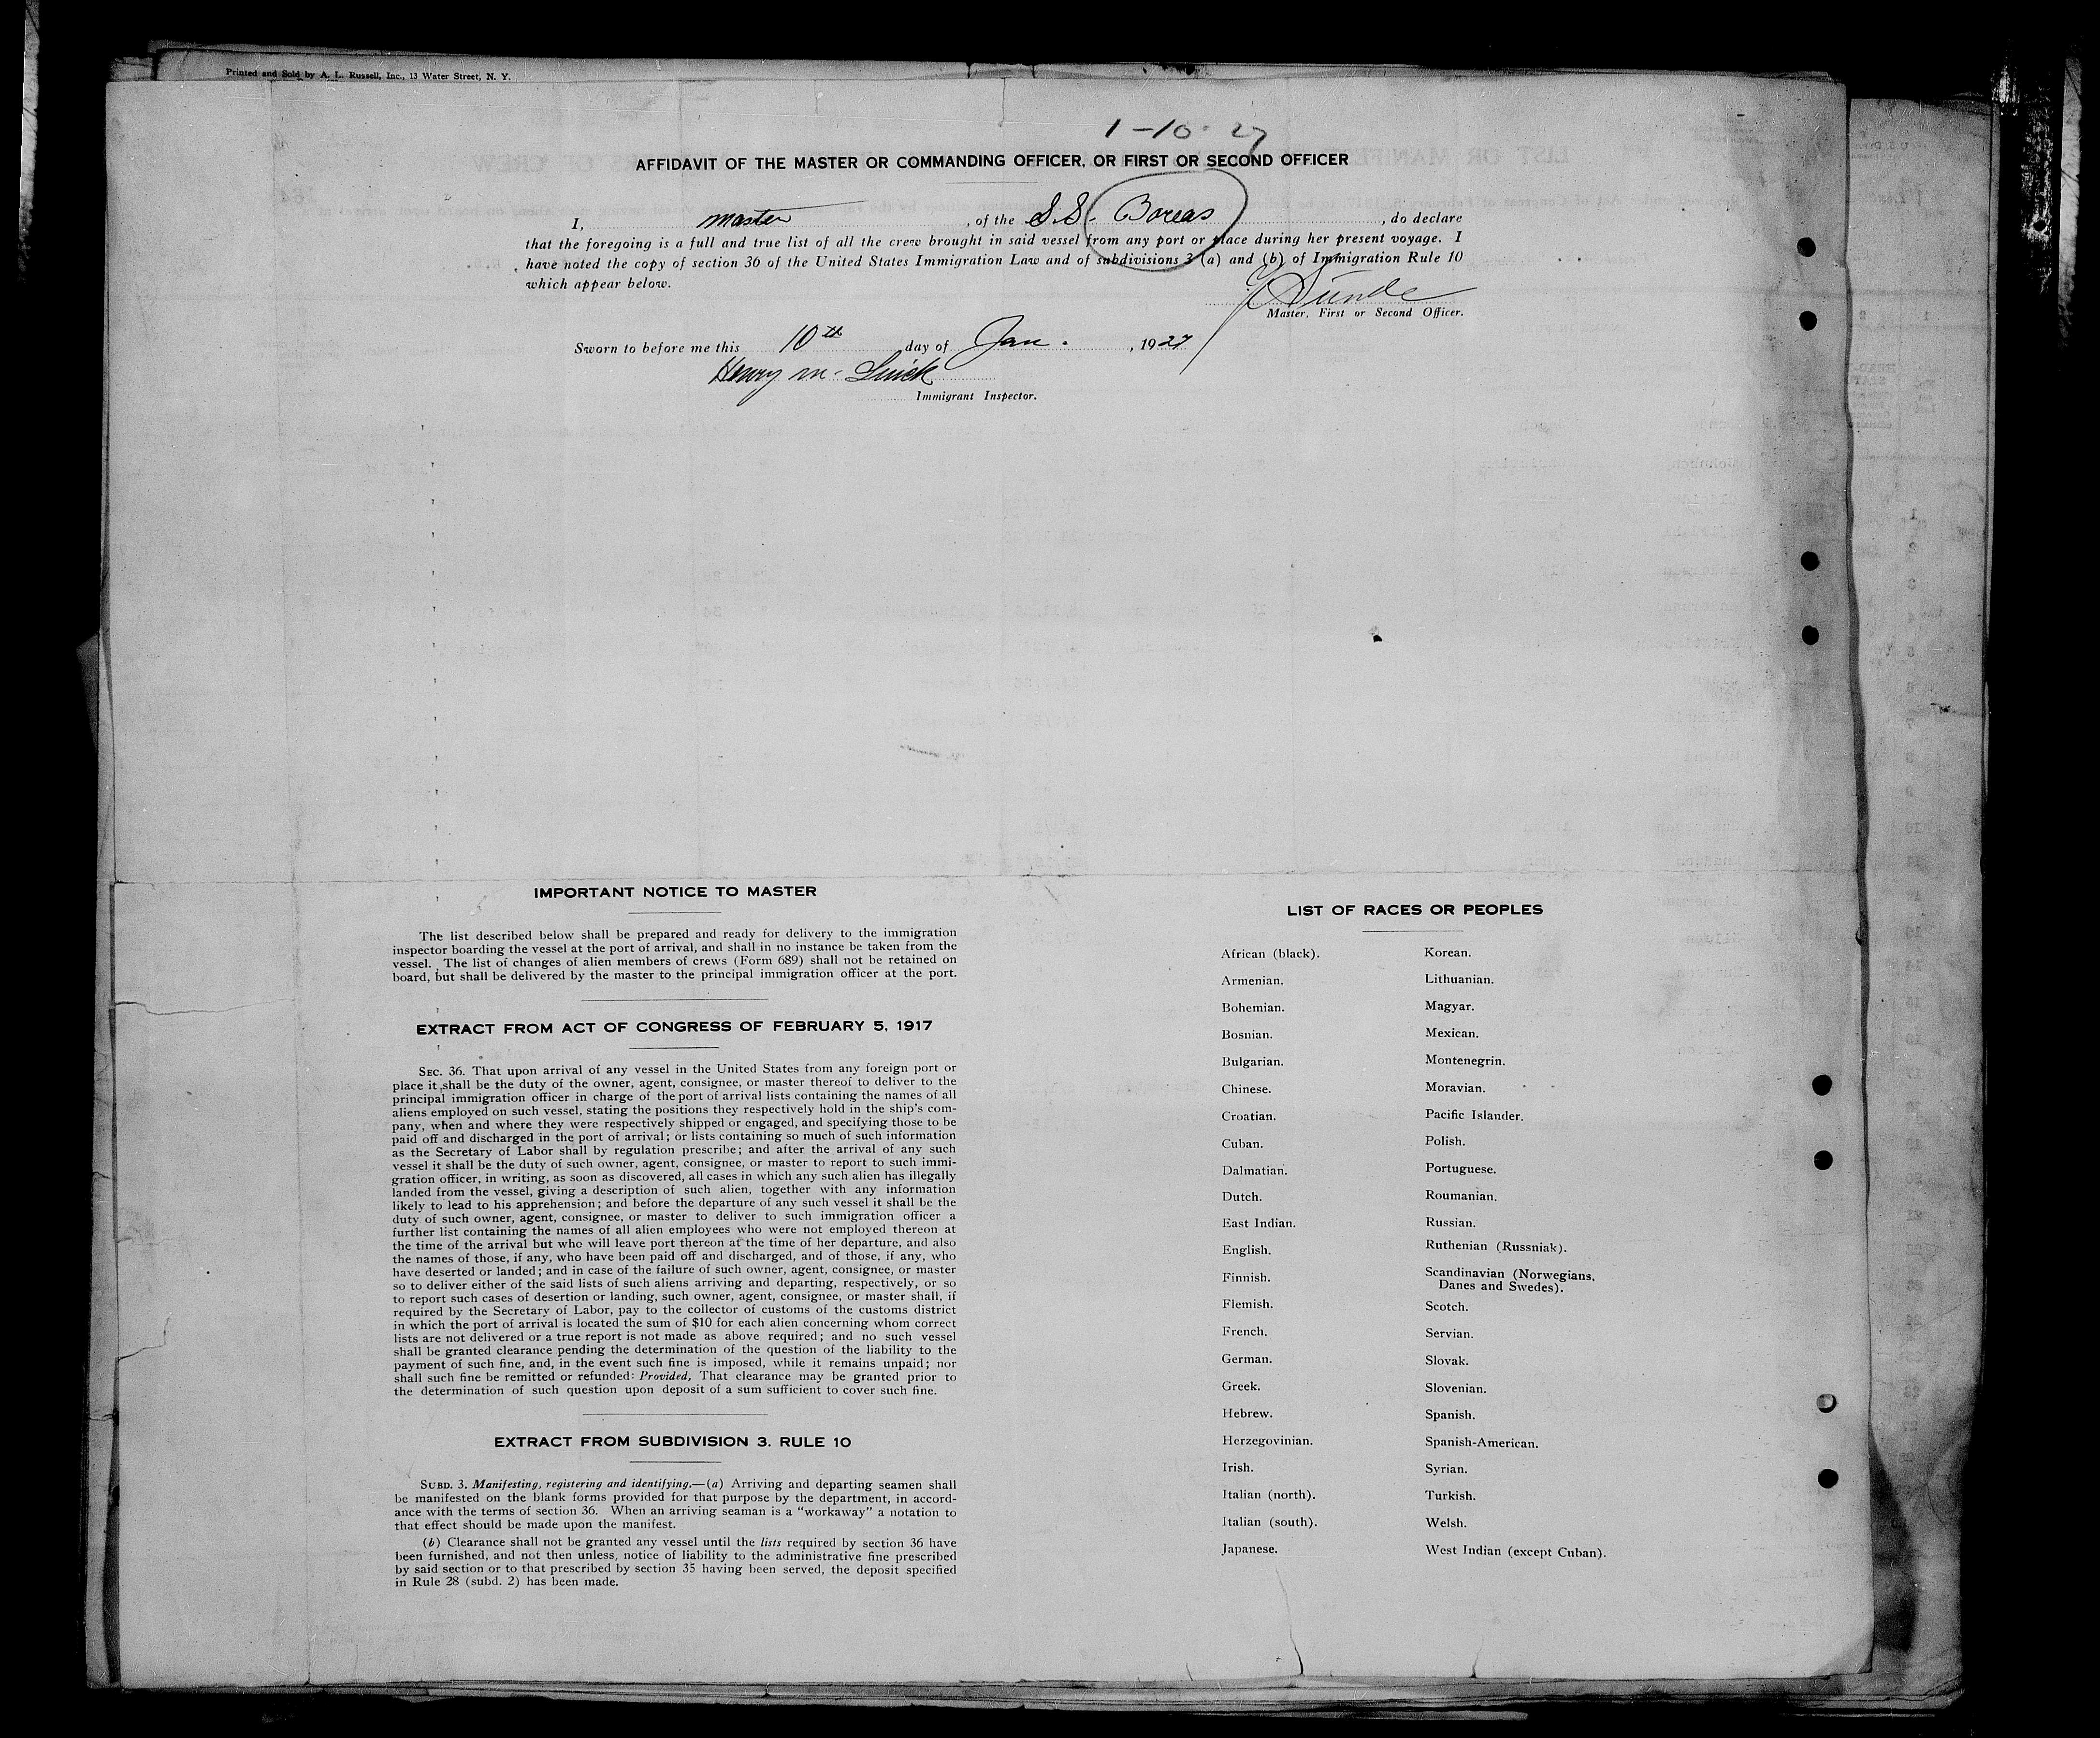 Printed and Sold by A. L. Russell, Inc., 13 Water Street, N. Y.
1-10-27
AFFIDAVIT OF THE MASTER OR COMMANDING OFFICER, OR FIRST OR SECOND OFFICER
I, master, of the S.S. Boreas, do declare
that the foregoing is a full and true list of all the crew brought in said vessel from any port or place during her present voyage. I
have noted the copy of section 36 of the United States Immigration Law and of subdivisions 3 (a) and (b) of Immigration Rule 10
which appear below.
Sunde
Master, First or Second Officer.
Sworn to before me this 10th day of Jan., 1927
Henry M.
Immigrant Inspector.
IMPORTANT NOTICE TO MASTER
The list described below shall be prepared and ready for delivery to the immigration
inspector boarding the vessel at the port of arrival, and shall in no instance be taken from the
vessel. The list of changes of alien members of crews (Form 689) shall not be retained on
board, but shall be delivered by the master to the principal immigration officer at the port.
EXTRACT FROM ACT OF CONGRESS OF FEBRUARY 5, 1917
SEC. 36. That upon arrival of any vessel in the United States from any foreign port or
place it shall be the duty of the owner, agent, consignee, or master thereof to deliver to the
principal immigration officer in charge of the port of arrival lists containing the names of all
aliens employed on such vessel, stating the positions they respectively hold in the ship's com-
pany, when and where they were respectively shipped or engaged, and specifying those to be
paid off and discharged in the port of arrival; or lists containing so much of such information
as the Secretary of Labor shall by regulation prescribe; and after the arrival of any such
vessel it shall be the duty of such owner, agent, consignee, or master to report to such immi-
gration officer, in writing, as soon as discovered, all cases in which any such alien has illegally
landed from the vessel, giving a description of such alien, together with any information
likely to lead to his apprehension; and before the departure of any such vessel it shall be the
duty of such owner, agent, consignee, or master to deliver to such immigration officer a
further list containing the names of all alien employees who were not employed thereon at
the time of the arrival but who will leave port thereon at the time of her departure, and also
the names of those, if any, who have been paid off and discharged, and of those, if any, who
have deserted or landed; and in case of the failure of such owner, agent, consignee, or master
so to deliver either of the said lists of such aliens arriving and departing, respectively, or so
to report such cases of desertion or landing, such owner, agent, consignee, or master shall, if
required by the Secretary of Labor, pay to the collector of customs of the customs district
in which the port of arrival is located the sum of $10 for each alien concerning whom correct
lists are not delivered or a true report is not made as above required; and no such vessel
shall be granted clearance pending the determination of the question of the liability to the
payment of such fine, and, in the event such fine is imposed, while it remains unpaid; nor
shall such fine be remitted or refunded: Provided, That clearance may be granted prior to
the determination of such question upon deposit of a sum sufficient to cover such fine.
EXTRACT FROM SUBDIVISION 3. RULE 10
SUBD. 3. Manifesting, registering and identifying.—(a) Arriving and departing seamen shall
be manifested on the blank forms provided for that purpose by the department, in accord-
ance with the terms of section 36. When an arriving seaman is a "workaway" a notation to
that effect should be made upon the manifest.
(b) Clearance shall not be granted any vessel until the lists required by section 36 have
been furnished, and not then unless, notice of liability to the administrative fine prescribed
by said section or to that prescribed by section 35 having been served, the deposit specified
in Rule 28 (subd. 2) has been made.
LIST OF RACES OR PEOPLES
African (black).
Armenian.
Bohemian.
Bosnian.
Bulgarian.
Chinese.
Croatian.
Cuban.
Dalmatian.
Dutch.
East Indian.
English.
Finnish.
Flemish.
French.
German.
Greek.
Hebrew.
Herzegovinian.
Irish.
Italian (north).
Italian (south).
Japanese.
Korean.
Lithuanian.
Magyar.
Mexican.
Montenegrin.
Moravian.
Pacific Islander.
Polish.
Portuguese.
Roumanian.
Russian.
Ruthenian (Russniak).
Scandinavian (Norwegians,
Danes and Swedes).
Scotch.
Servian.
Slovak.
Slovenian.
Spanish.
Spanish-American.
Syrian.
Turkish.
Welsh.
West Indian (except Cuban).